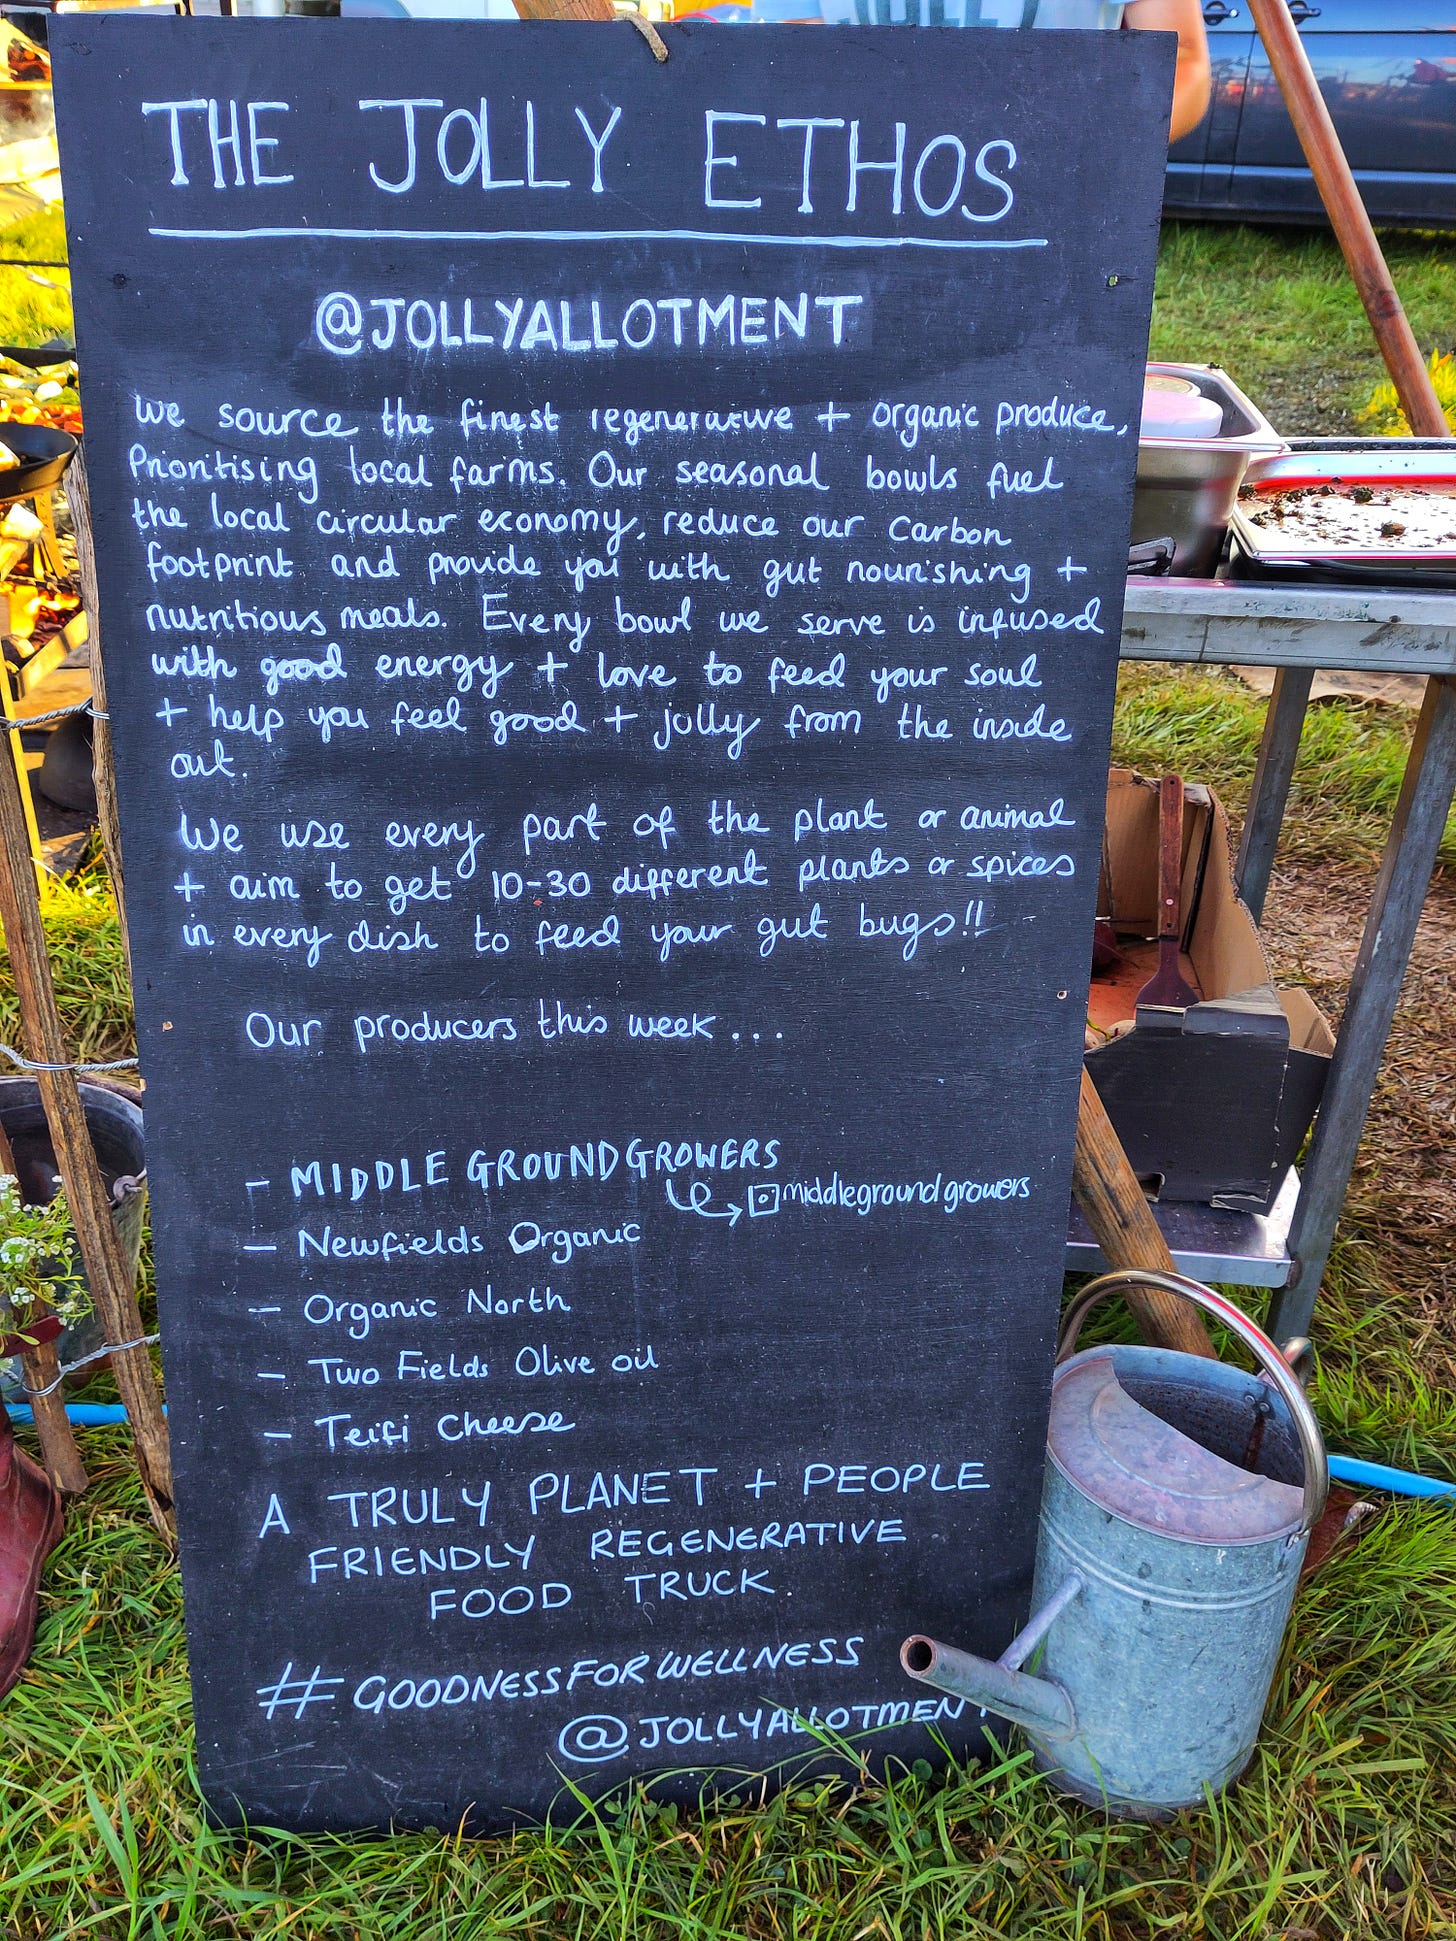 THE JOLLY ETHOS
@JOLLYALLOTMENT
We source the finest regenerative + organic produce,
Prioritising local farms. Our seasonal bowls fuel
the local circular economy, reduce our carbon
footprint and provide you with gut nourishing +
nutritious meals. Every bowl we serve is infused
with good energy + love to feed your soul
+ help you feel good + jolly from the inside
out.
We use every part of the plant or animal
+ aim to get 10-30 different plants or spices
in every dish to feed your gut bugs!!
Our producers this week...
- MIDDLE GROUND GROWERS
middlegroundgrowers
- Newfields Organic
- Organic North
- Two Fields Olive oil
- Teifi Cheese
A TRULY PLANET + PEOPLE
FRIENDLY REGENERATIVE
FOOD TRUCK.
#GOODNESSFORWELLNESS
@JOLLYALLOTMENT